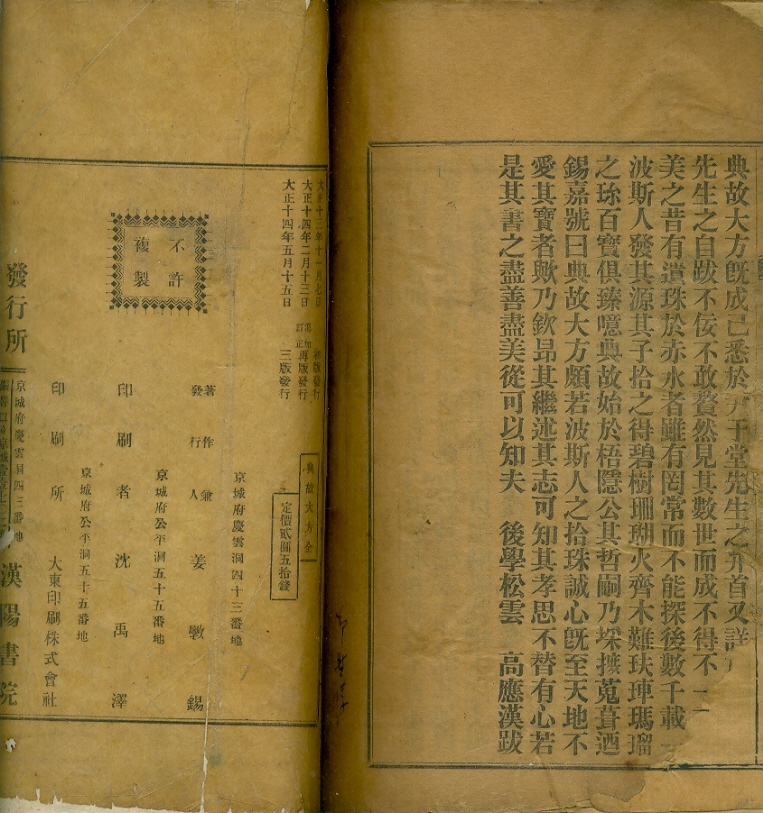 典故大方旣成已悉於 于堂先生之弁首又詳
先生之自跋不佞不敢贅然見其數世而成不得不一二
美之昔有遺珠於赤水者雖有罔常而不能探後數千載
波斯人發其源其子拾之得碧樹珊瑚火齊木難玞琿瑪瑠
之珎百寶俱臻噫典故始於梧隱公其哲嗣乃埰摭蒐葺迺
錫嘉號曰典故大方頗若波斯人之拾珠誠心旣至天地不
愛其寶者歟乃欽昻其繼述其志可知其孝思不替有心若
是其書之盡善盡美從可以知夫 後學松雲 高應漢跋
大正十三年十一月七日 初版發行
大正十四年二月十三日 追加訂正再版發行
大正十四年五月十五日 三版發行
不許
複製
典故大方全
定價貳圓五拾錢
京城府慶雲洞四十三番地
著作兼
發行人 姜斅錫
京城府公平洞五十五番地
印刷者 沈禹澤
京城府公平洞五十五番地
印刷所 大東印刷株式會社
京城府慶雲洞四三番地
發行所 漢陽書院